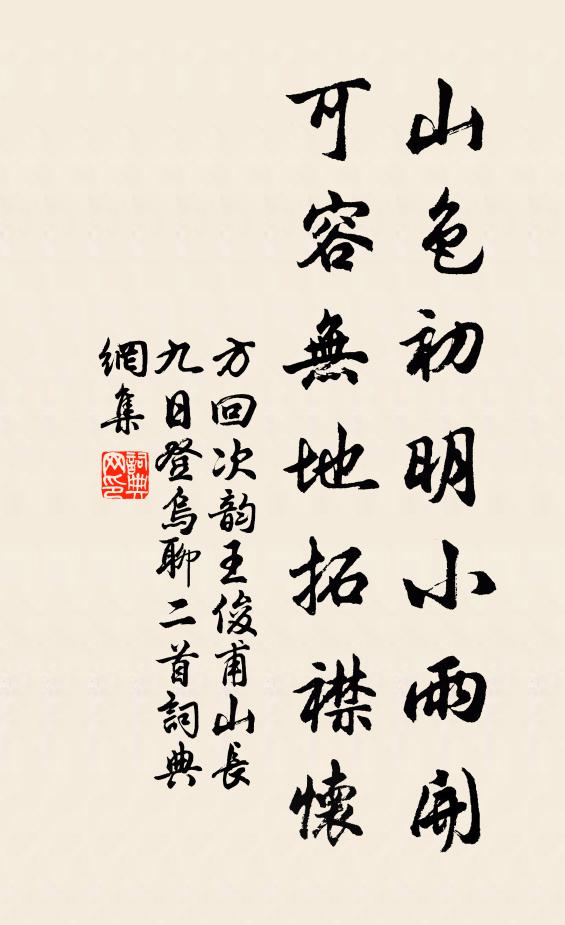 山色初明小雨開
可容無地拓襟懷
方回次韵王俊甫山長
九日登烏聊二首詞典
網集
詞典網印